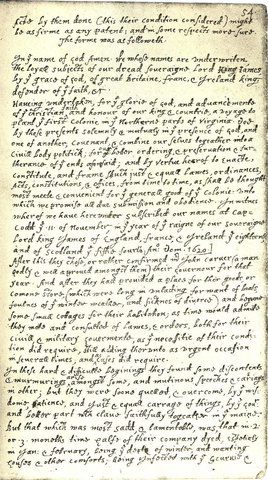 54
by them done (this their condition considered) might
be as firme as any patent; and in some respects more sure.
The forme was as followeth.
In yͤ name of god Amen. We whose names are underwriten,
the loyall subjects of our dread soveraigne Lord King James
by yͤ grace of god, of great Britaine, franc, & Ireland king,
defender of yͤ faith, &c
Haveing undertaken, for yͤ glorie of god, and advancemente
of yͤ christian faith and honour of our king & countrie, a voyage to
plant yͤ first colonie in yͤ Northerne parts of virginia. Doe
by these presents solemnly & mutualy in yͤ presence of god, and
one of another, covenant, & combine our selves togeather into a
civill body politick; for our better ordering, & preservation & fur=
therance of yͤ ends aforesaid; and by vertue hearof to enacte,
constitute, and frame shuch just & equall lawes, ordinances,
Acts, constitutions, & offices, from time to time, as shall be thought
most meete & convenient for yͤ generall good of yͤ Colonie: unto
which we promise all due submission and obedience. In witnes
wherof we have hereunder subscribed our names at Cap=
Codd yͤ ·11· of November, in yͤ year of yͤ raigne of our soveraigne
Lord king James of England, france, & Ireland yͤ eighteenth
and of Scotland yͤ fiftie fourth. Ano: Dom ·1620·
After this they chose, or rather confirmed mͬ John Carver (a man
godly & well approved amongst them) their Governour for that
year. And after they had provided a place for their goods, or
comone store, (which were long in unlading for want of boats,
foulnes of yͤ winter weather, and sicknes of diverce) and begune
some small cottages for their habitation; as time would admitte
they mette and consulted of lawes, & orders, both for their
civill & military Govermente, as yͤ necessitie of their condi=
tion did require, still adding therunto as urgent occasion
in severall times, and as cases did require.
In these hard & difficulte beginings they found some discontents
& murmurings amongst some, and mutinous speeches & carriags
in other; but they were soone quelled, & overcome, by yͤ wis=
dome, patience, and just & equall carrage of things, by yͤ Govͬ
and better part wͨͪ clave faithfully togeather in yͤ maine.
But that which was most sadd, & lamentable, was, that in ·2·
or ·3· moneths time halfe of their company dyed, espetialy
in Jan: & february, being yͤ depth of winter, and wanting
houses & other comforts; being infected with yͤ scurvie &